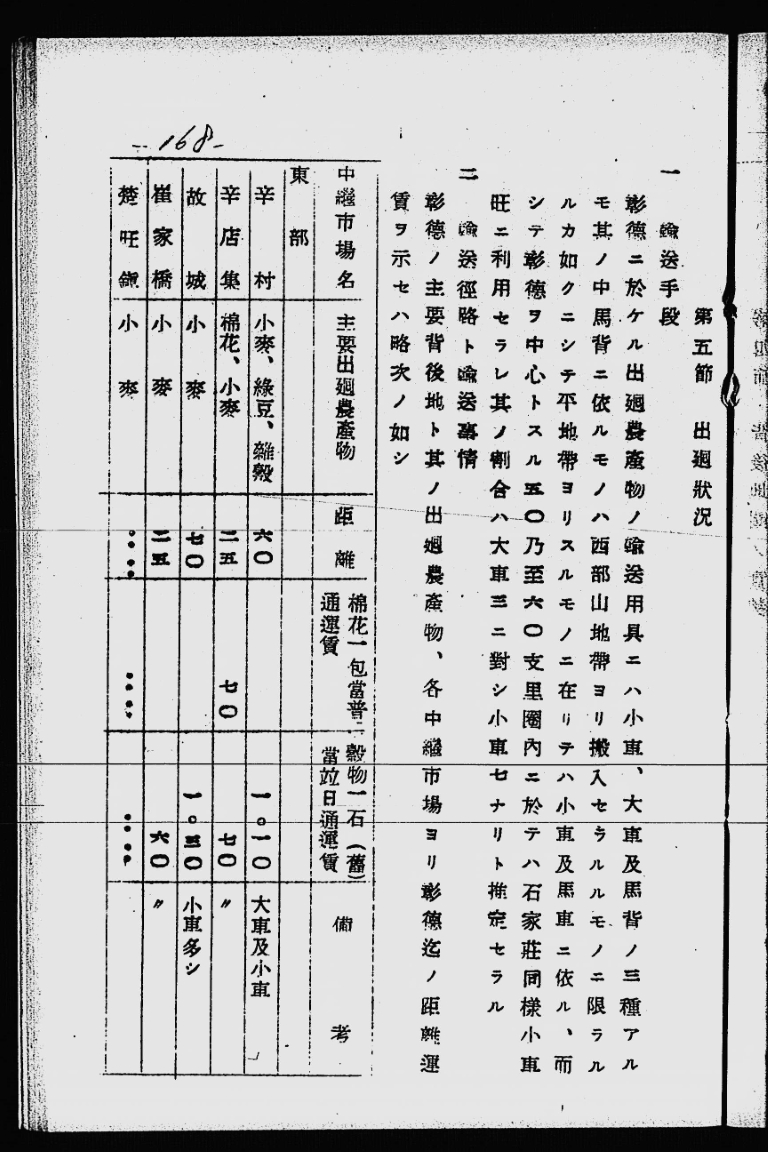 第五節 出廻狀況
一 輸送手段
彰德ニ於ケル出廻農產物ノ輸送用具ニハ小車、大車及馬背ノ三種アル
モ其ノ中馬背ニ依ルモノハ西部山地帶ヨリ搬入セラルルモノニ限ラル
ルカ如クニシテ平地帶ヨリスルモノニ在リテハ小車及馬車ニ依ル、而
シテ彰德ヲ中心トスル五〇乃至六〇支里圈內ニ於テハ石家莊同樣小車
旺ニ利用セラレ其ノ割合ハ大車三ニ對シ小車七ナリト推定セラル
二 輸送徑路ト輸送事情
彰德ノ主要背後地ト其ノ出廻農產物、各中繼市場ヨリ彰德迄ノ距離運
賃ヲ示セハ略次ノ如シ
中繼市場名 主要出廻農產物 距離 棉花一包當普通運賃 穀物一石(舊)當竝日通運賃 備考
東部
辛村 小麥、綠豆、雜穀 六〇 一。一〇 大車及小車
辛店集 棉花、小麥 二五 七〇 七〇 〃
故城 小麥 七〇 一。三〇 小車多シ
崔家橋 小麥 二五 六〇 〃
楚旺鎮 小麥 •••• •••• ••••
-168-